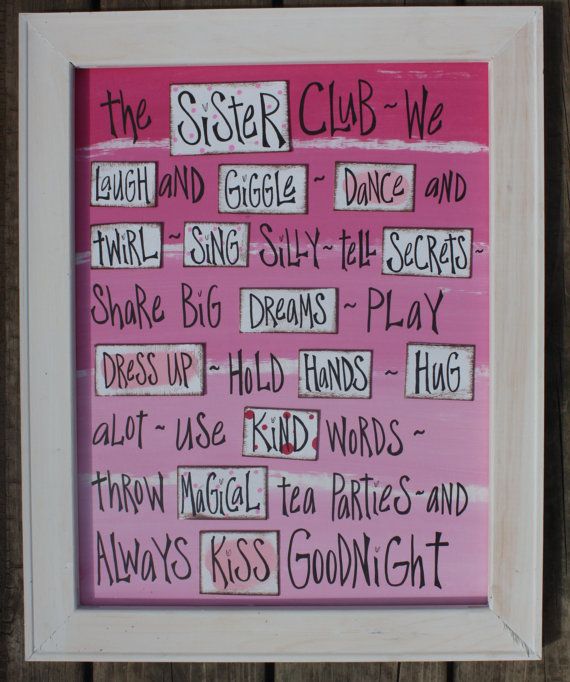 the SiSTER CLUB ~ We
LAUGH AND GiGGLE ~ DaNCE AND
tWiRL ~ SiNG SiLLY ~ tell SeCRETS ~
SHaRE BiG DREAMS ~ PLAY
DReSS UP ~ HOLD HaNDS ~ HUG
aLOT ~ USe KiND WORDS ~
tHROW MaGiCaL tea PaRTieS ~ AND
ALWaYS KiSS GOODNiGHt